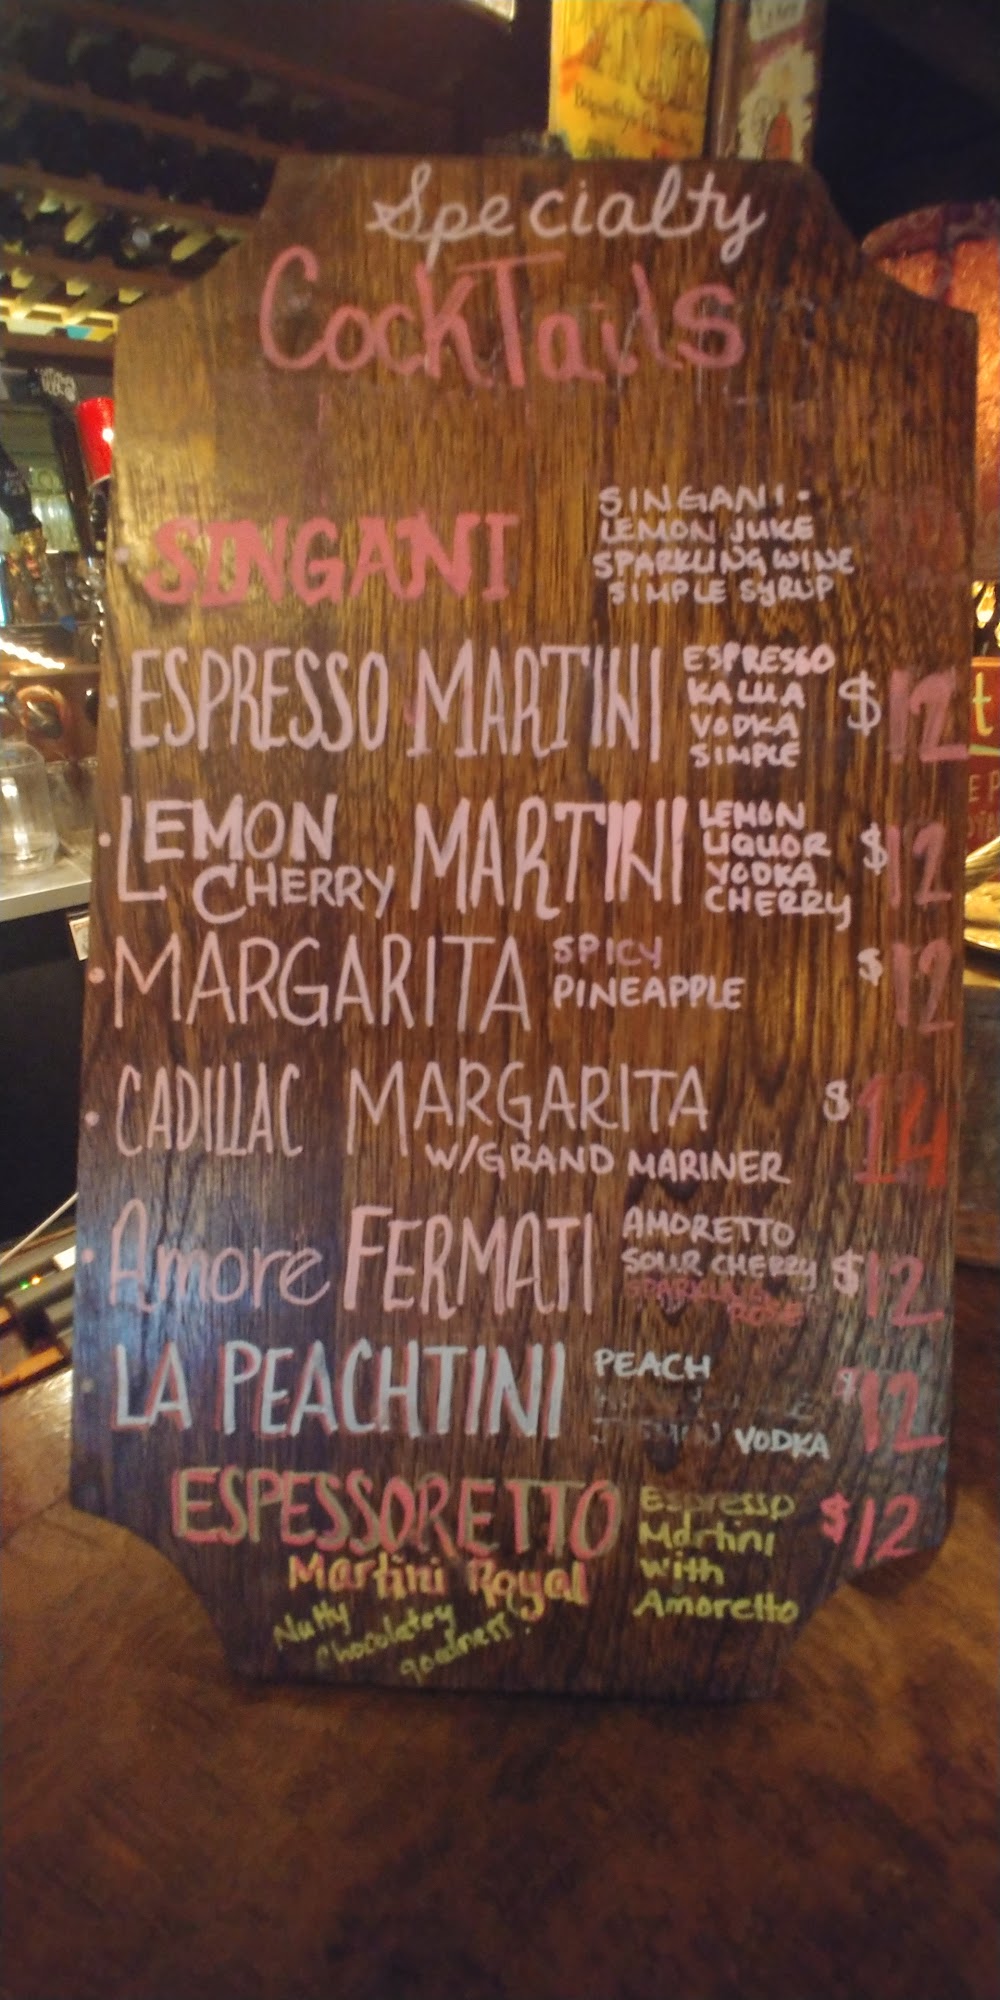 Specialty
CockTails
SINGANI
SINGANI -
LEMON JUICE
SPARKLING WINE
SIMPLE SYRUP
ESPRESSO MARTINI
ESPRESSO
KALUA
VODKA
SIMPLE
$12
LEMON
CHERRY
MARTINI
LEMON
LIQUOR
VODKA
CHERRY
$12
MARGARITA
SPICY
PINEAPPLE
$12
CADILLAC MARGARITA
W/GRAND MARINER
$14
Amore FERMATI
AMORETTO
SOUR CHERRY
SPARKLING
ROSE
$12
LA PEACHTINI
PEACH
VODKA
$12
ESPESSORETTO
Martini Royal
Nutty
Chocolatey
goodness!
Espresso
Martini
with
Amoretto
$12